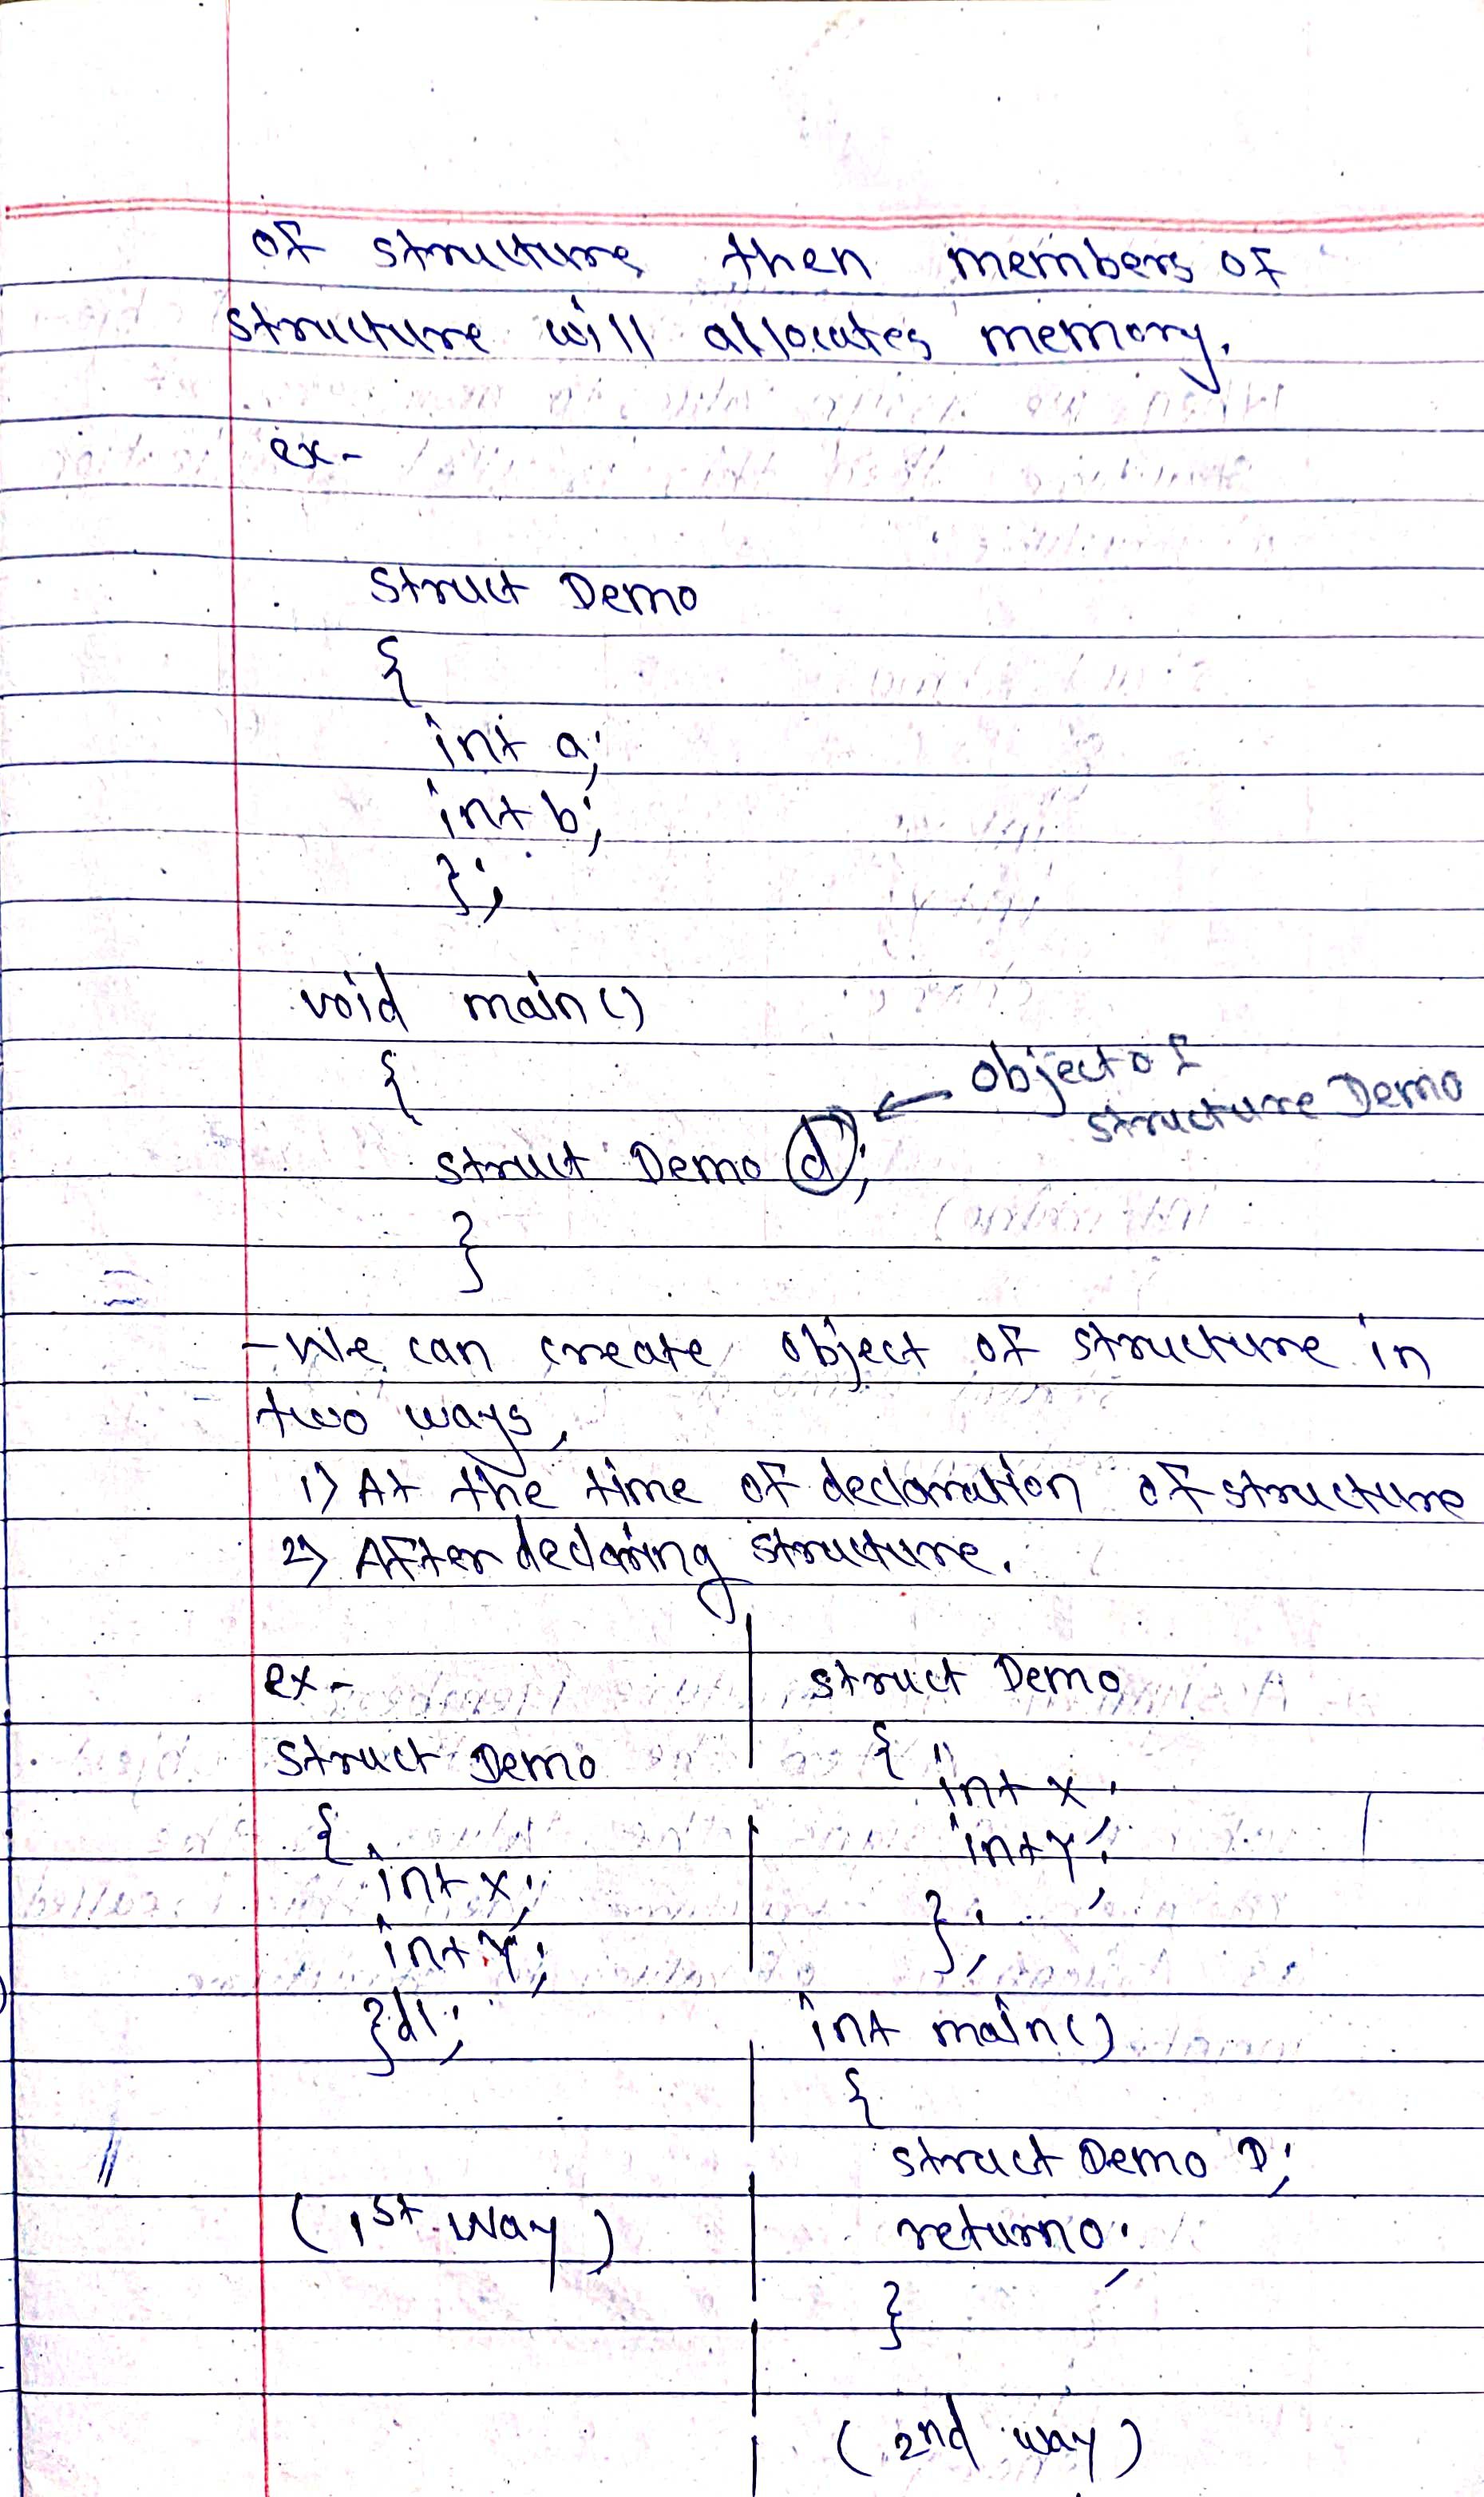 of structure then members of
structure will allocates memory.
ex-
struct Demo
{
int a;
int b;
};
void main()
{
object of
structure Demo
struct Demo d;
}
- We can create object of structure in
two ways,
1) At the time of declaration of structure
2) After declaring structure.
ex-
struct Demo
{
int x;
int y;
}d1;
(1st way)
struct Demo
{
int x;
int y;
};
int main()
{
struct Demo D;
return 0;
}
(2nd way)